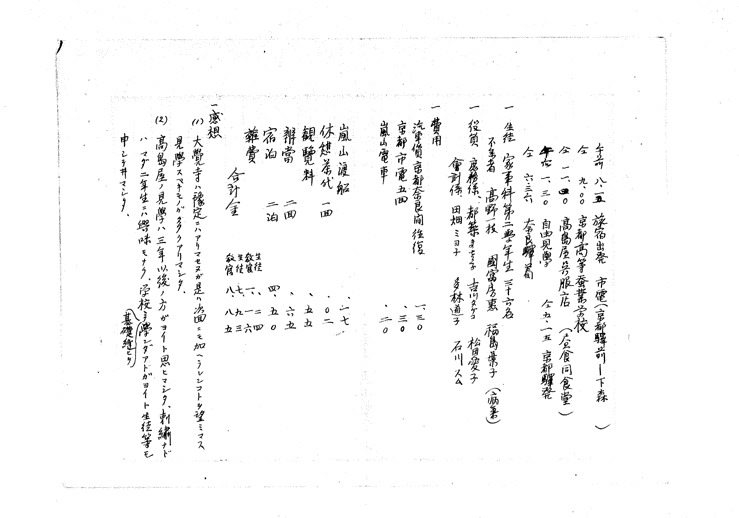 午前 八・一五 旅宿出発 市電(京都驛前ー下森)
仝 九・〇〇 京都高等蚕業学校
仝 一一・四〇 高島屋呉服店 (昼食同食堂)
午后 一・三〇 自由見学 仝五・一五 京都驛発
仝 六・三六 奈良驛着
一 生徒 家事科第二学年生 三十六名
不参者 高野一枝 國富房恵 福島葉子(病気)
一 役員 庶務係 都築まち子 古川タケヨ 松田愛子
会計係 田畑ミヨ子 多林道子 石川スム
一 費用
汽車賃京都奈良間往復 一・三〇
京都市電五回 ・三〇
嵐山電車 ・二〇
嵐山渡船 ・一七
休憩茶代 一回 ・〇二
観覧料 ・五五
辨當 二回 ・六五
宿泊 二泊 四・五〇
雑費 生徒 一・二四 教官 一・一六
合計金 生徒 七・九三 教官 八・八五
一 感想
(1) 大覺寺ハ豫定ニハアリマセヌガ是非次回ニモ加ヘラレンコトヲ望ミマス
見学スベキモノガタクサンアリマシタ、
(2) 高島屋ノ見学ハ三年以後ノ方ガヨイト思ヒマシタ、刺繍ナド
ハマダ二年生ニハ興味モナク、学校デ基礎縫ヒヲ学ンダアトガヨイト生徒等モ
申シテ井マシタ、